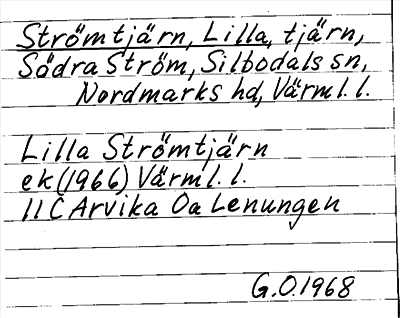 Strömtjärn, Lilla, tjärn,
Södra Ström, Silbodals sn,
Nordmarks hd, Värml. l.
Lilla Strömtjärn
ek (1966) Värml. l.
11 C Arvika Oa Lenungen
G.O. 1968